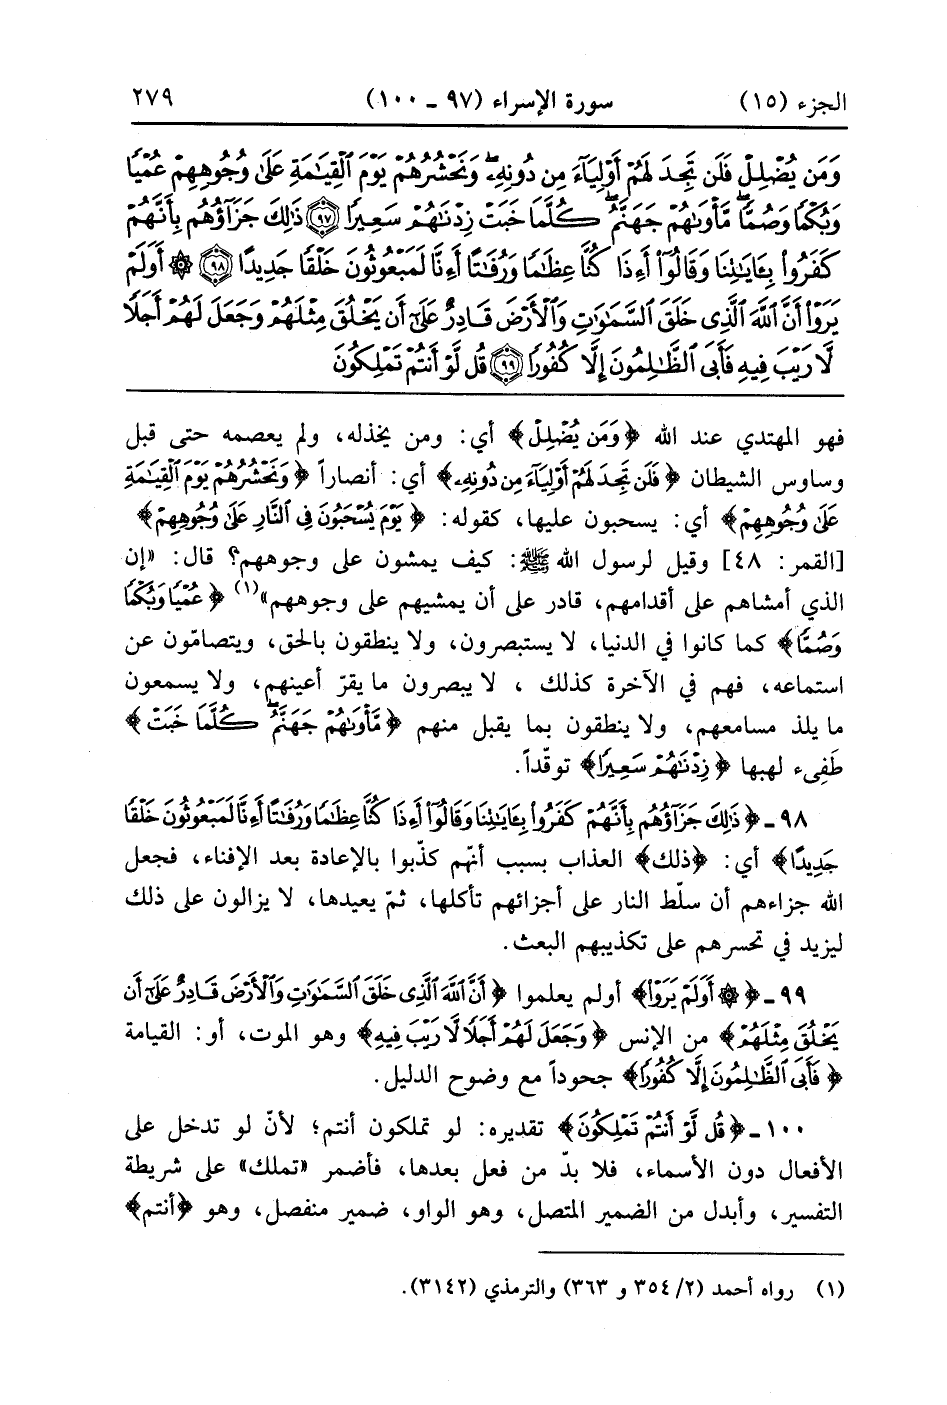 الجزء (١٥) سورة الإسراء (٩٧ ـ ١٠٠) ٢٧٩
وَمَن يُضْلِلْ فَلَن تَجِدَ لَهُمْ أَوْلِيَآءَ مِن دُونِهِۦۖ وَنَحْشُرُهُمْ يَوْمَ ٱلْقِيَٰمَةِ عَلَىٰ وُجُوهِهِمْ عُمْيًا
وَبُكْمًا وَصُمًّاۖ مَّأْوَىٰهُمْ جَهَنَّمُۖ كُلَّمَا خَبَتْ زِدْنَٰهُمْ سَعِيرًا ﴿٩٧﴾ ذَٰلِكَ جَزَآؤُهُم بِأَنَّهُمْ
كَفَرُوا۟ بِـَٔايَٰتِنَا وَقَالُوٓا۟ أَءِذَا كُنَّا عِظَٰمًا وَرُفَٰتًا أَءِنَّا لَمَبْعُوثُونَ خَلْقًا جَدِيدًا ﴿٩٨﴾ ۞ أَوَلَمْ
يَرَوْا۟ أَنَّ ٱللَّهَ ٱلَّذِى خَلَقَ ٱلسَّمَٰوَٰتِ وَٱلْأَرْضَ قَادِرٌ عَلَىٰٓ أَن يَخْلُقَ مِثْلَهُمْ وَجَعَلَ لَهُمْ أَجَلًا
لَّا رَيْبَ فِيهِ فَأَبَى ٱلظَّٰلِمُونَ إِلَّا كُفُورًا ﴿٩٩﴾ قُل لَّوْ أَنتُمْ تَمْلِكُونَ
فهو المهتدي عند الله ﴿وَمَن يُضْلِلْ﴾ أي: ومن يخذله، ولم يعصمه حتى قبل
وساوس الشيطان ﴿فَلَن تَجِدَ لَهُمْ أَوْلِيَآءَ مِن دُونِهِۦ﴾ أي: أنصاراً ﴿وَنَحْشُرُهُمْ يَوْمَ ٱلْقِيَٰمَةِ
عَلَىٰ وُجُوهِهِمْ﴾ أي: يسحبون عليها، كقوله: ﴿يَوْمَ يُسْحَبُونَ فِى ٱلنَّارِ عَلَىٰ وُجُوهِهِمْ﴾
[القمر: ٤٨] وقيل لرسول الله ﷺ: كيف يمشون على وجوههم؟ قال: «إن
الذي أمشاهم على أقدامهم، قادر على أن يمشيهم على وجوههم»(١) ﴿عُمْيًا وَبُكْمًا
وَصُمًّا﴾ كما كانوا في الدنيا، لا يستبصرون، ولا ينطقون بالحق، ويتصامّون عن
استماعه، فهم في الآخرة كذلك ، لا يبصرون ما يقرّ أعينهم، ولا يسمعون
ما يلذ مسامعهم، ولا ينطقون بما يقبل منهم ﴿مَّأْوَىٰهُمْ جَهَنَّمُۖ كُلَّمَا خَبَتْ﴾
طَفِىء لهبها ﴿زِدْنَٰهُمْ سَعِيرًا﴾ توقّداً.
٩٨ ـ ﴿ذَٰلِكَ جَزَآؤُهُم بِأَنَّهُمْ كَفَرُوا۟ بِـَٔايَٰتِنَا وَقَالُوٓا۟ أَءِذَا كُنَّا عِظَٰمًا وَرُفَٰتًا أَءِنَّا لَمَبْعُوثُونَ خَلْقًا
جَدِيدًا﴾ أي: ﴿ذلك﴾ العذاب بسبب أنّهم كذّبوا بالإعادة بعد الإفناء، فجعل
الله جزاءهم أن سلّط النار على أجزائهم تأكلها، ثمّ يعيدها، لا يزالون على ذلك
ليزيد في تحسرهم على تكذيبهم البعث.
٩٩ ـ ﴿۞ أَوَلَمْ يَرَوْا۟﴾ أولم يعلموا ﴿أَنَّ ٱللَّهَ ٱلَّذِى خَلَقَ ٱلسَّمَٰوَٰتِ وَٱلْأَرْضَ قَادِرٌ عَلَىٰٓ أَن
يَخْلُقَ مِثْلَهُمْ﴾ من الإنس ﴿وَجَعَلَ لَهُمْ أَجَلًا لَّا رَيْبَ فِيهِ﴾ وهو الموت، أو: القيامة
﴿فَأَبَى ٱلظَّٰلِمُونَ إِلَّا كُفُورًا﴾ جحوداً مع وضوح الدليل.
١٠٠ ـ ﴿قُل لَّوْ أَنتُمْ تَمْلِكُونَ﴾ تقديره: لو تملكون أنتم؛ لأنّ لو تدخل على
الأفعال دون الأسماء، فلا بدّ من فعل بعدها، فأضمر «تملك» على شريطة
التفسير، وأبدل من الضمير المتصل، وهو الواو، ضمير منفصل، وهو ﴿أنتم﴾
(١) رواه أحمد (٢/ ٣٥٤ و ٣٦٣) والترمذي (٣١٤٢).